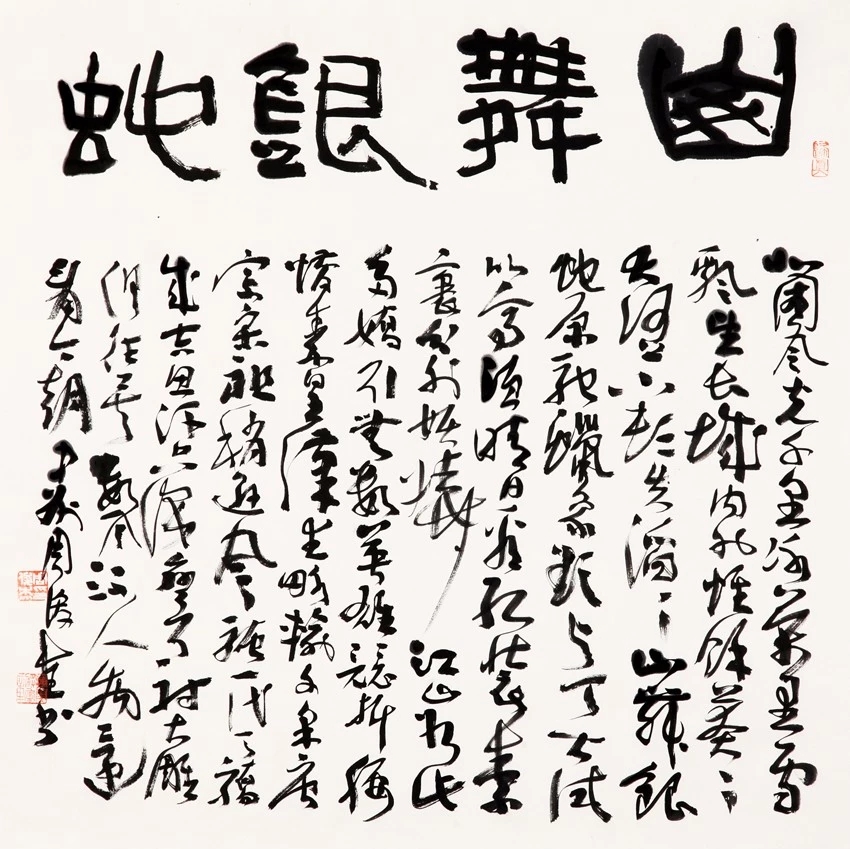 山舞銀蛇
北國風光千里冰封萬里雪
飄望長城內外惟餘莽莽
大河上下頓失滔滔山舞銀
蛇原馳蠟象欲與天公試
比高須晴日看紅裝素
裹分外妖嬈江山如此
多嬌引無數英雄競折腰
惜秦皇漢武略輸文采唐
宗宋祖稍遜風騷一代天驕
成吉思汗只識彎弓射大雕
俱往矣數風流人物還
看今朝 周俊杰書